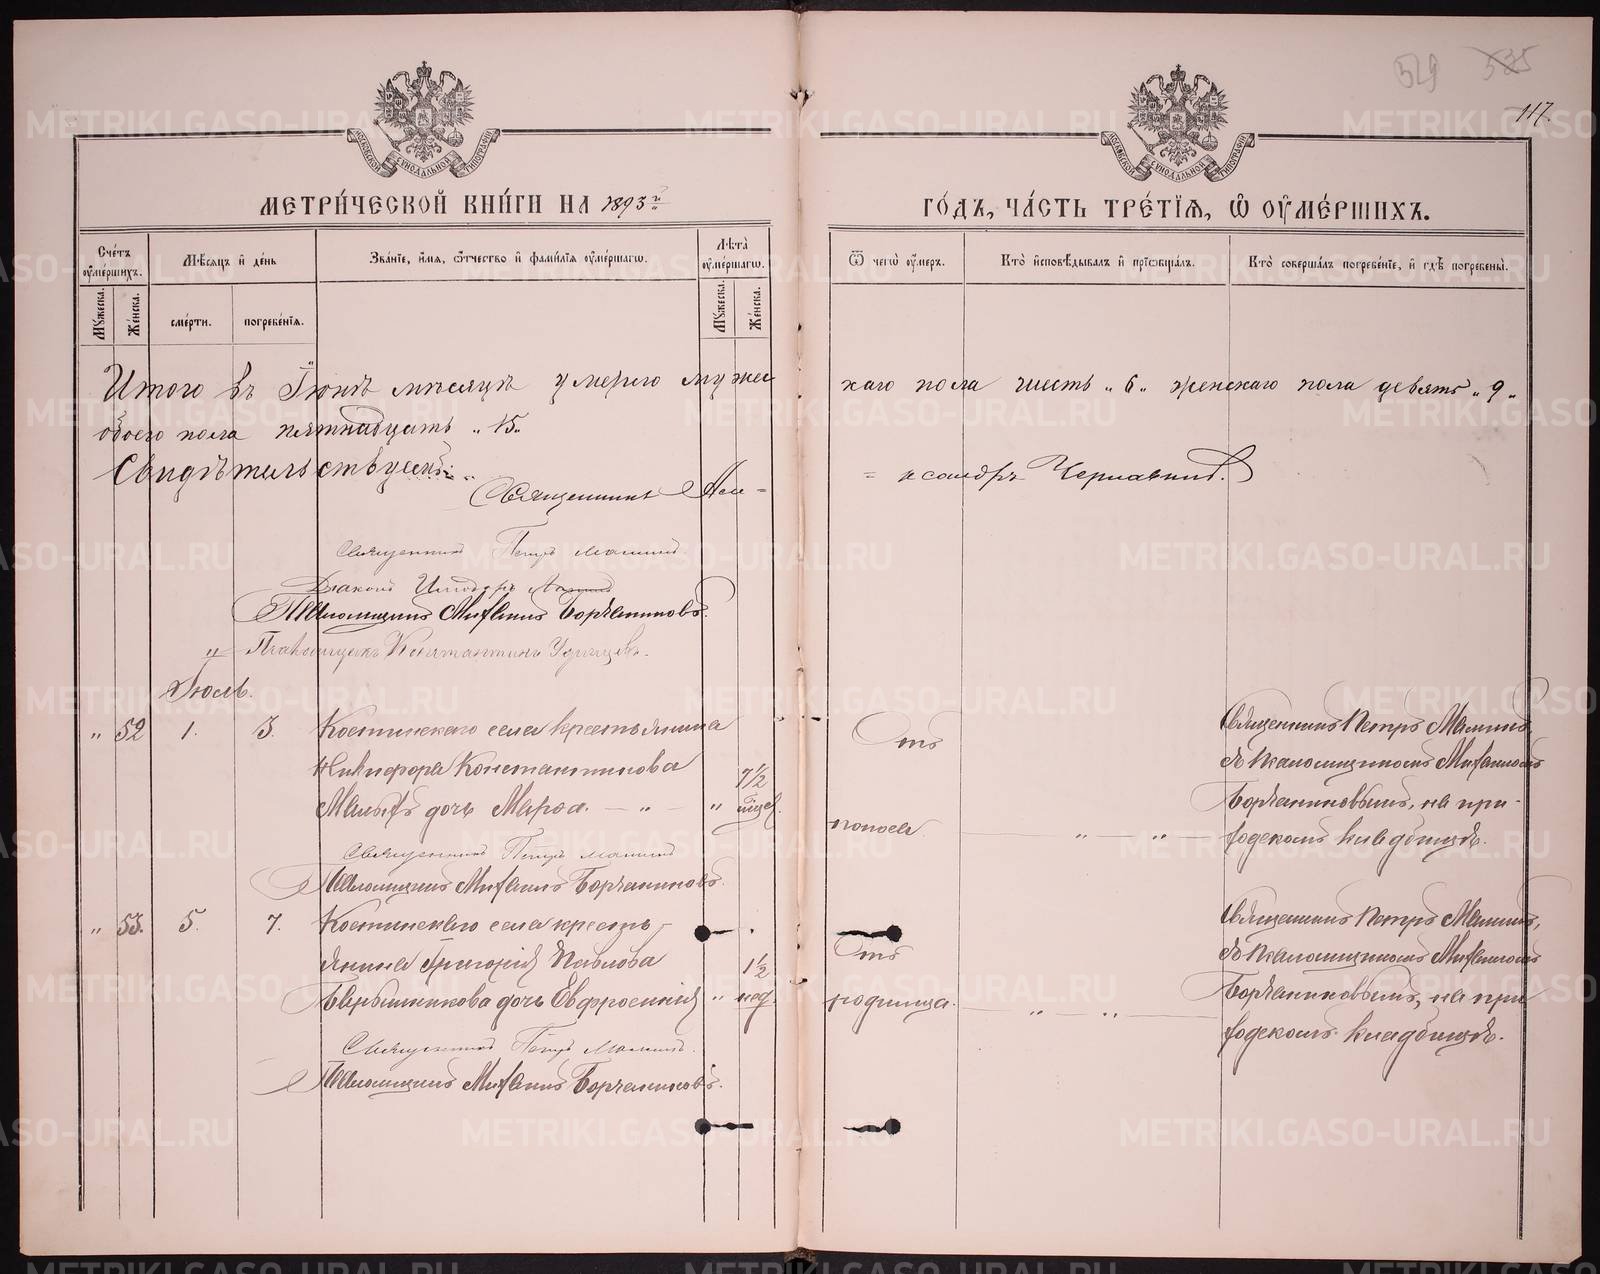 529 535
117.
МОСКОВСКОЙ СУНОДАЛЬНОЙ ТИПОГРАФІИ
МОСКОВСКОЙ СУНОДАЛЬНОЙ ТИПОГРАФІИ
МЕТРИ́ЧЕСКОЙ КНИ́ГИ НА 1893й
ГО́ДЪ, ЧА́СТЬ ТРЕ́ТІѦ, Ѿ ОУ҆МЕ́РШИХЪ.
Сче́тъ оу҆ме́ршихъ.
Мꙋ́жеска.
Же́нска.
Мѣ́сѧцъ и҆ де́нь
сме́рти.
погребе́нїѧ.
Зва́нїе, и҆́мѧ, ѻ҆́тчество и҆ фами́лїѧ оу҆ме́ршагѡ.
Лѣ́та оу҆ме́ршагѡ.
Мꙋ́жеска.
Же́нска.
Ѿ чегѡ̀ оу҆́меръ.
Кто̀ и҆сповѣ́дывалъ и҆ прїѡбща́лъ.
Кто̀ соверша́лъ погребе́нїе, и҆ гдѣ̀ погребены̀.
Итого въ Іюнѣ мѣсяцѣ умерло мужес
каго пола шесть „6„ женскаго пола девять „9„
обоего пола пятнадцать „15„
Свидѣтельствуемъ:
Священникъ Але=
=ксандръ Чернавинъ.
Священникъ Петръ Мамин
Діаконъ
Псаломщикъ Михаилъ Борчаниновъ.
Псаломщикъ Константинъ
Іюль.
„ 52 1. 3. Костинскаго села крестьянина
Никифора Константинова
Малыхъ дочь Марѳа. — „ — „ 7½ мѣсе.
Отъ
поноса. — „ — „ —
Священникъ Петръ Маминъ,
съ Псаломщикомъ Михаиломъ
Борчаниновымъ, на при-
ходскомъ кладбищѣ.
Священникъ Петръ Мамин
Псаломщикъ Михаилъ Борчаниновъ.
„ 53. 5. 7. Костинскаго села кресть-
янина Григорія Павлова
дочь Евфросинія „ 1½ нед.
Отъ
родимца. — „ — „ —
Священникъ Петръ Маминъ,
съ Псаломщикомъ Михаиломъ
Борчаниновымъ, на при
ходскомъ кладбищѣ.
Священникъ Петръ Мамин.
Псаломщикъ Михаилъ Борчаниновъ.
METRIKI.GASO-URAL.RU